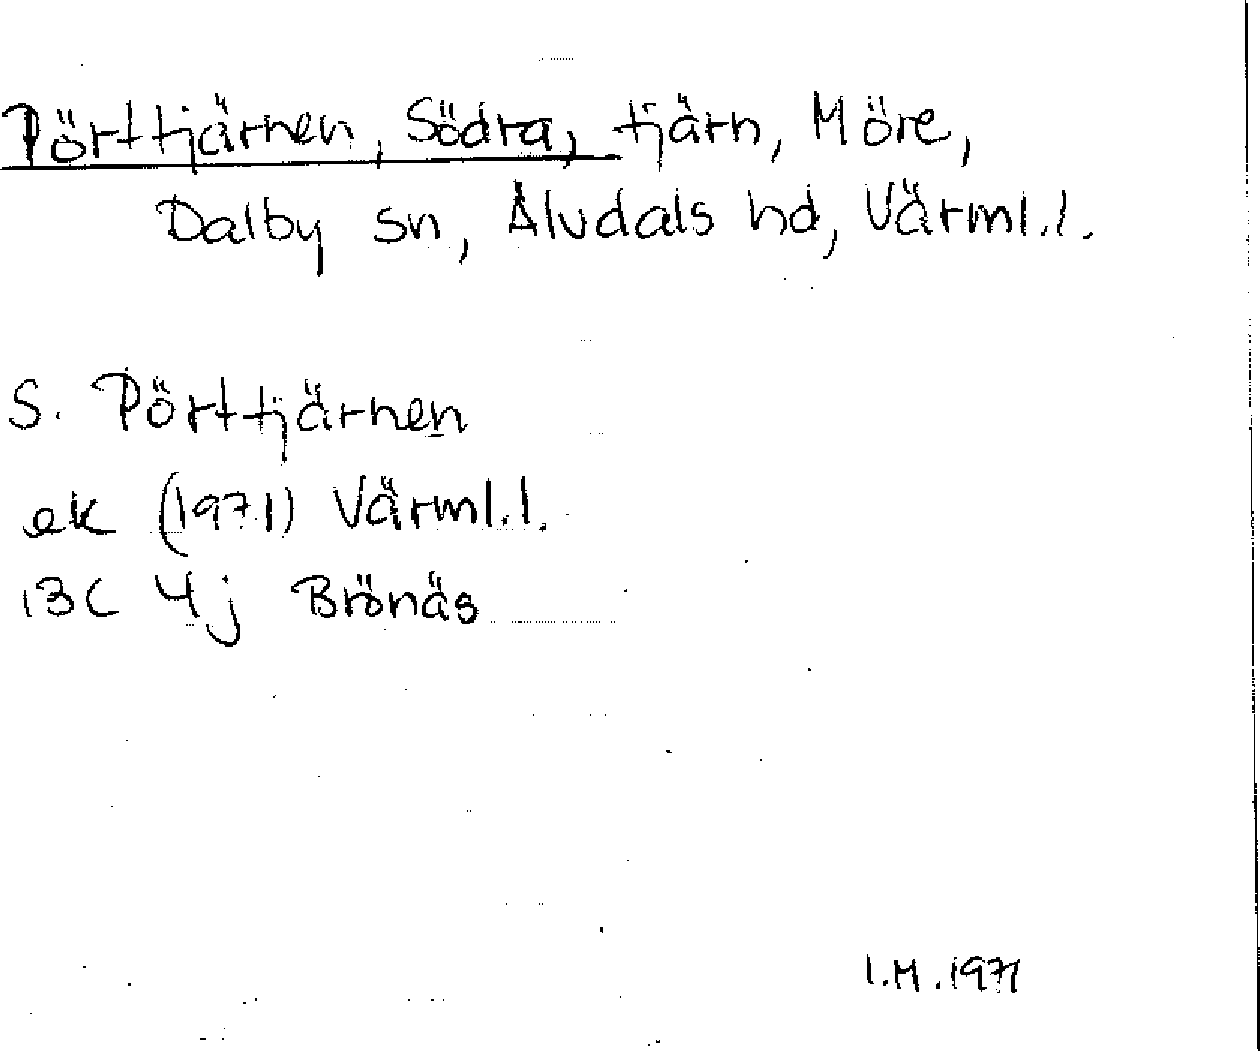 Pörttjärnen, Södra, tjärn, Möre,
Dalby sn, Älvdals hd, Värml.l.
S. Pörttjärnen
ek (1971) Värml.l.
13C 4j Brönäs
I.M. 1971